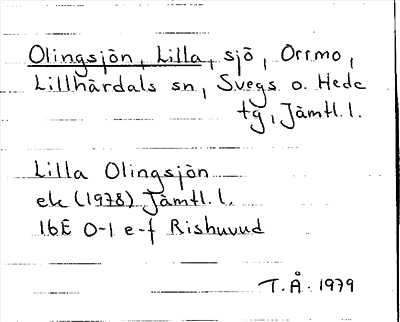 Olingsjön, Lilla, sjö, Orrmo,
Lillhärdals sn, Svegs o. Hede
tg, Jämtl. l.
Lilla Olingsjön
ek (1978) Jämtl. l.
16E 0-1 e-f Rishuvud
T.Å. 1979